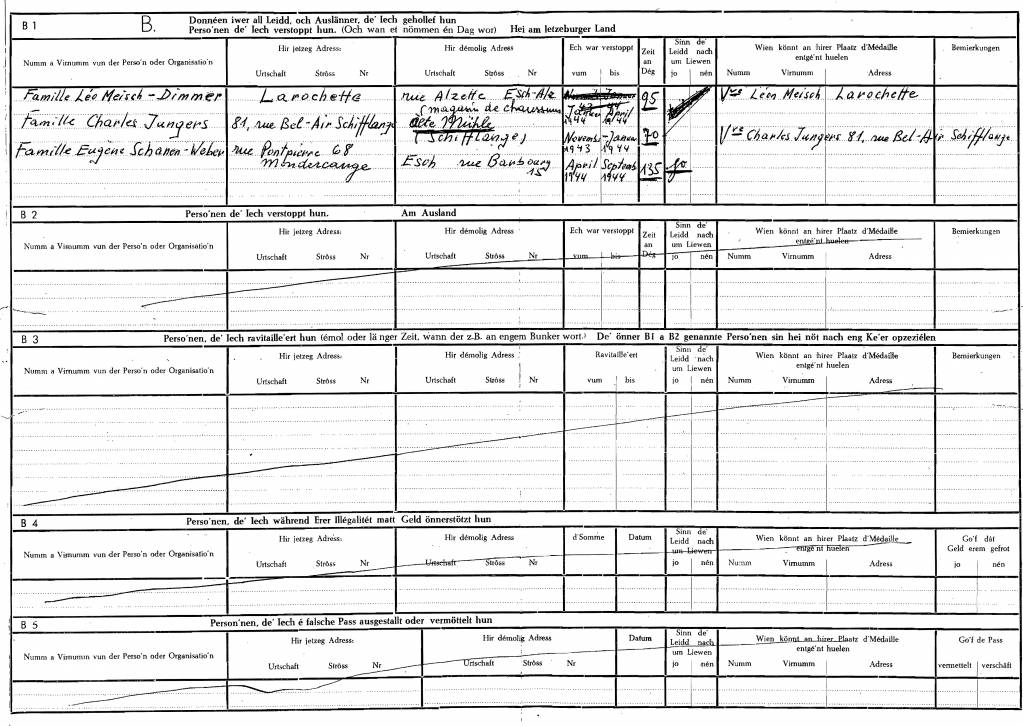 B 1 B. Donnéen iwer all Leidd, och Auslänner, de' Iech gehollef hun
Perso'nen de' Iech verstoppt hun. (Och wan et nömmen én Dag wor) Hei am letzeburger Land
Numm a Virnumm vun der Perso'n oder Organisatio'n
Hir jetzeg Adress:
Urtschaft Ströss Nr
Hir démolig Adress
Urtschaft Ströss Nr
Ech war verstoppt
vum bis
Zeit
an
Dég
Sinn de'
Leidd nach
um Liewen
jo nén
Wien könnt an hirer Plaatz d'Médaille
entgé'nt huelen
Numm Virnumm Adress
Bemierkungen
Famille Léo Meisch - Dimmer Larochette rue Alzette Esch-Alz 95 Vve Léon Meisch Larochette
(magasin de chaussures Janvier April
1944 1944
Famille Charles Jungers 81, rue Bel-Air Schifflange alte Mühle
(Schifflange) Novemb- Janva 70 Vve Charles Jungers 81, rue Bel-Air Schifflange
1943 1944
Famille Eugène Schanen-Weber rue Pontpierre 68
Mondercange
Esch rue Barbourg
15
April Septemb 135 jo
1944 1944
B 2 Perso'nen de' Iech verstoppt hun. Am Ausland
Numm a Virnumm vun der Perso'n oder Organisatio'n
Hir jetzeg Adress:
Urtschaft Ströss Nr
Hir démolig Adress
Urtschaft Ströss Nr
Ech war verstoppt
vum bis
Zeit
an
Dég
Sinn de'
Leidd nach
um Liewen
jo nén
Wien könnt an hirer Plaatz d'Médaille
entgé'nt huelen
Numm Virnumm Adress
Bemierkungen
B 3 Perso'nen, de' Iech ravitaille'ert hun (émol oder lä nger Zeit, wann der z.B. an engem Bunker wort.) De' önner B1 a B2 genannte Perso'nen sin hei nöt nach eng Ke'er opzeziélen
Numm a Virnumm vun der Perso'n oder Organisatio'n
Hir jetzeg Adress:
Urtschaft Ströss Nr
Hir démolig Adress
Urtschaft Ströss Nr
Ravitaille'ert
vum bis
Sinn de'
Leidd nach
um Liewen
jo nén
Wien könnt an hirer Plaatz d'Médaille
entgé'nt huelen
Numm Virnumm Adress
Bemierkungen
B 4 Perso'nen, de' Iech während Erer Illégalitét matt Geld önnerstötzt hun
Numm a Virnumm vun der Perso'n oder Organisatio'n
Hir jetzeg Adress:
Urtschaft Ströss Nr
Hir démolig Adress
Urtschaft Ströss Nr
d'Somme
Datum
Sinn de'
Leidd nach
um Liewen
jo nén
Wien könnt an hirer Plaatz d'Médaille
entgé'nt huelen
Numm Virnumm Adress
Go'f dát
Geld erem gefrot
jo nén
B 5 Person'nen, de' Iech é falsche Pass ausgestallt oder vermöttelt hun
Numm a Virnumm vun der Perso'n oder Organisatio'n
Hir jetzeg Adress:
Urtschaft Ströss Nr
Hir démolig Adress
Urtschaft Ströss Nr
Datum
Sinn de'
Leidd nach
um Liewen
jo nén
Wien könnt an hirer Plaatz d'Médaille
entgé'nt huelen
Numm Virnumm Adress
Go'f de Pass
vermettelt verschäft